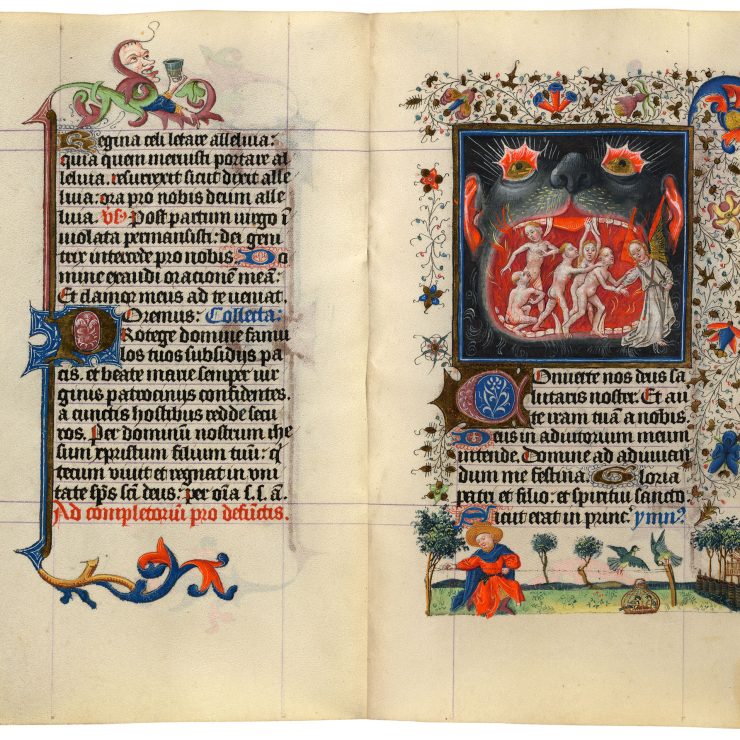 Regina celi letare alleluia:
quia quem meruisti portare al
leluia. resurrexit sicut dixit alle
luia: ora pro nobis deum alle
luia. vs̄. Post partum uirgo ī
uiolata permansisti: dei geni
trix intercede pro nobis. Do
mine exaudi orationē meā:
Et clamor meus ad te ueniat.
Oremus: Collecta:
Protege domine famu
los tuos subsidijs pa
cis. et beate marie semper uir
ginis patrocinijs confidentes.
a cunctis hostibus redde secu
ros. Per dominū nostrum ihe
sum xpristum filium tuū: q̄
tecum uiuit et regnat in vni
tate sp̄s sc̄i deus: per oīa s. s. ā.
Ad completoriū pro defūctis.
Conuerte nos deus sa
lutaris noster. Et auer
te iram tuā a nobis.
Deus in adiutorium meum
intende. Domine ad adiuuan
dum me festina. Gloria
patri et filio: et spiritui sancto.
Sicut erat in princ̄. ymn9.